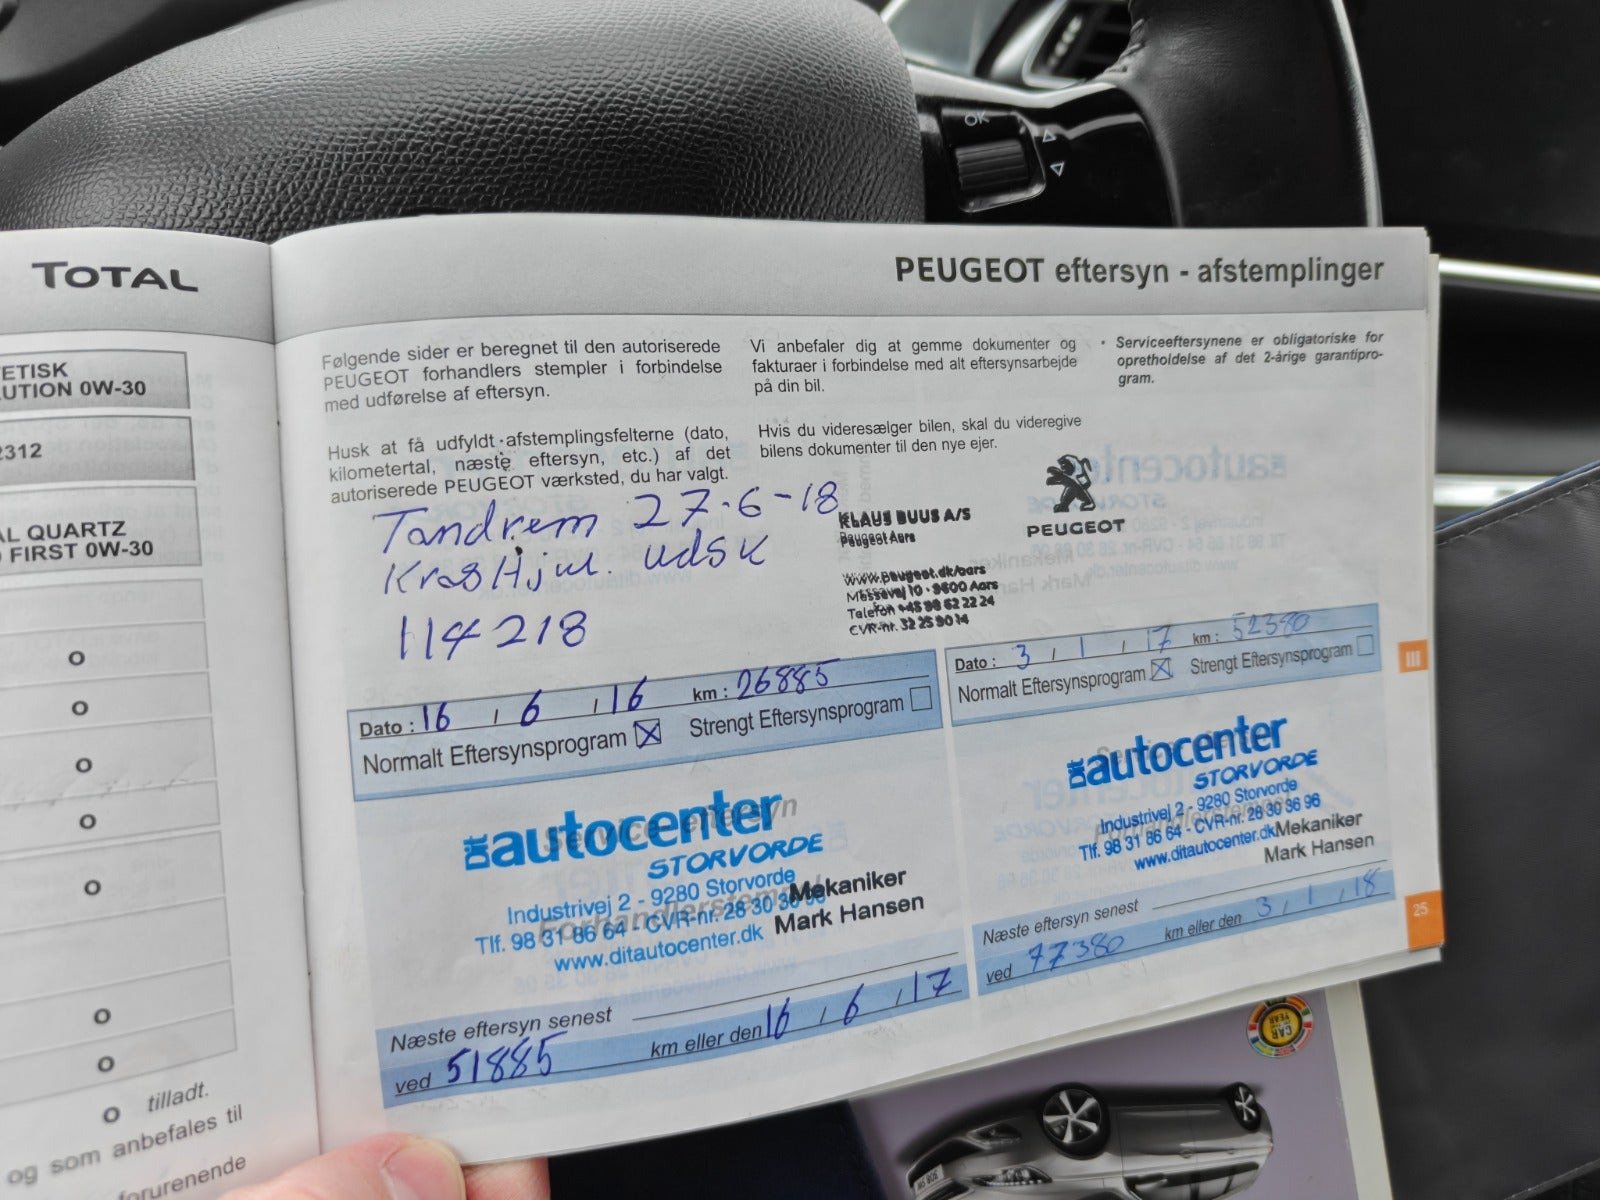 TOTAL
ETISK
UTION 0W-30
2312
AL QUARTZ
FIRST 0W-30
o
o
o
o
o
o
o
o tilladt.
og som anbefales til
forurenende
PEUGEOT eftersyn - afstemplinger
Følgende sider er beregnet til den autoriserede
PEUGEOT forhandlers stempler i forbindelse
med udførelse af eftersyn.
Husk at få udfyldt afstemplingsfelterne (dato,
kilometertal, næste eftersyn, etc.) af det
autoriserede PEUGEOT værksted, du har valgt.
Vi anbefaler dig at gemme dokumenter og
fakturaer i forbindelse med alt eftersynsarbejde
på din bil.
Hvis du videresælger bilen, skal du videregive
bilens dokumenter til den nye ejer.
• Serviceeftersynene er obligatoriske for
opretholdelse af det 2-årige garantipro-
gram.
Tandrem 27-6-18
udsk
114218
KLAUS BUUS A/S
Peugeot Aars
www.peugeot.dk/aars
Messevej 10 - 9600 Aars
Telefon +45 98 62 22 24
CVR-nr. 32 25 90 14
PEUGEOT
Dato : 16 / 6 / 16 km : 26885
Normalt Eftersynsprogram Strengt Eftersynsprogram
Service eftersyn
Forhandlerstempel
Dit autocenter
STORVORDE
Industrivej 2 - 9280 Storvorde
Tlf. 98 31 86 64 - CVR-nr. 28 30 36 96
www.ditautocenter.dk
Mekaniker
Mark Hansen
Næste eftersyn senest
ved 51885 km eller den 16 / 6 / 17
Dato : 3 / 1 / 17 km : 52380
Normalt Eftersynsprogram Strengt Eftersynsprogram
Dit autocenter
STORVORDE
Industrivej 2 - 9280 Storvorde
Tlf. 98 31 86 64 - CVR-nr. 28 30 36 96
www.ditautocenter.dk
Mekaniker
Mark Hansen
Næste eftersyn senest
ved 77380 km eller den 3 / 1 / 18
III
25
OK
CAR
YEAR